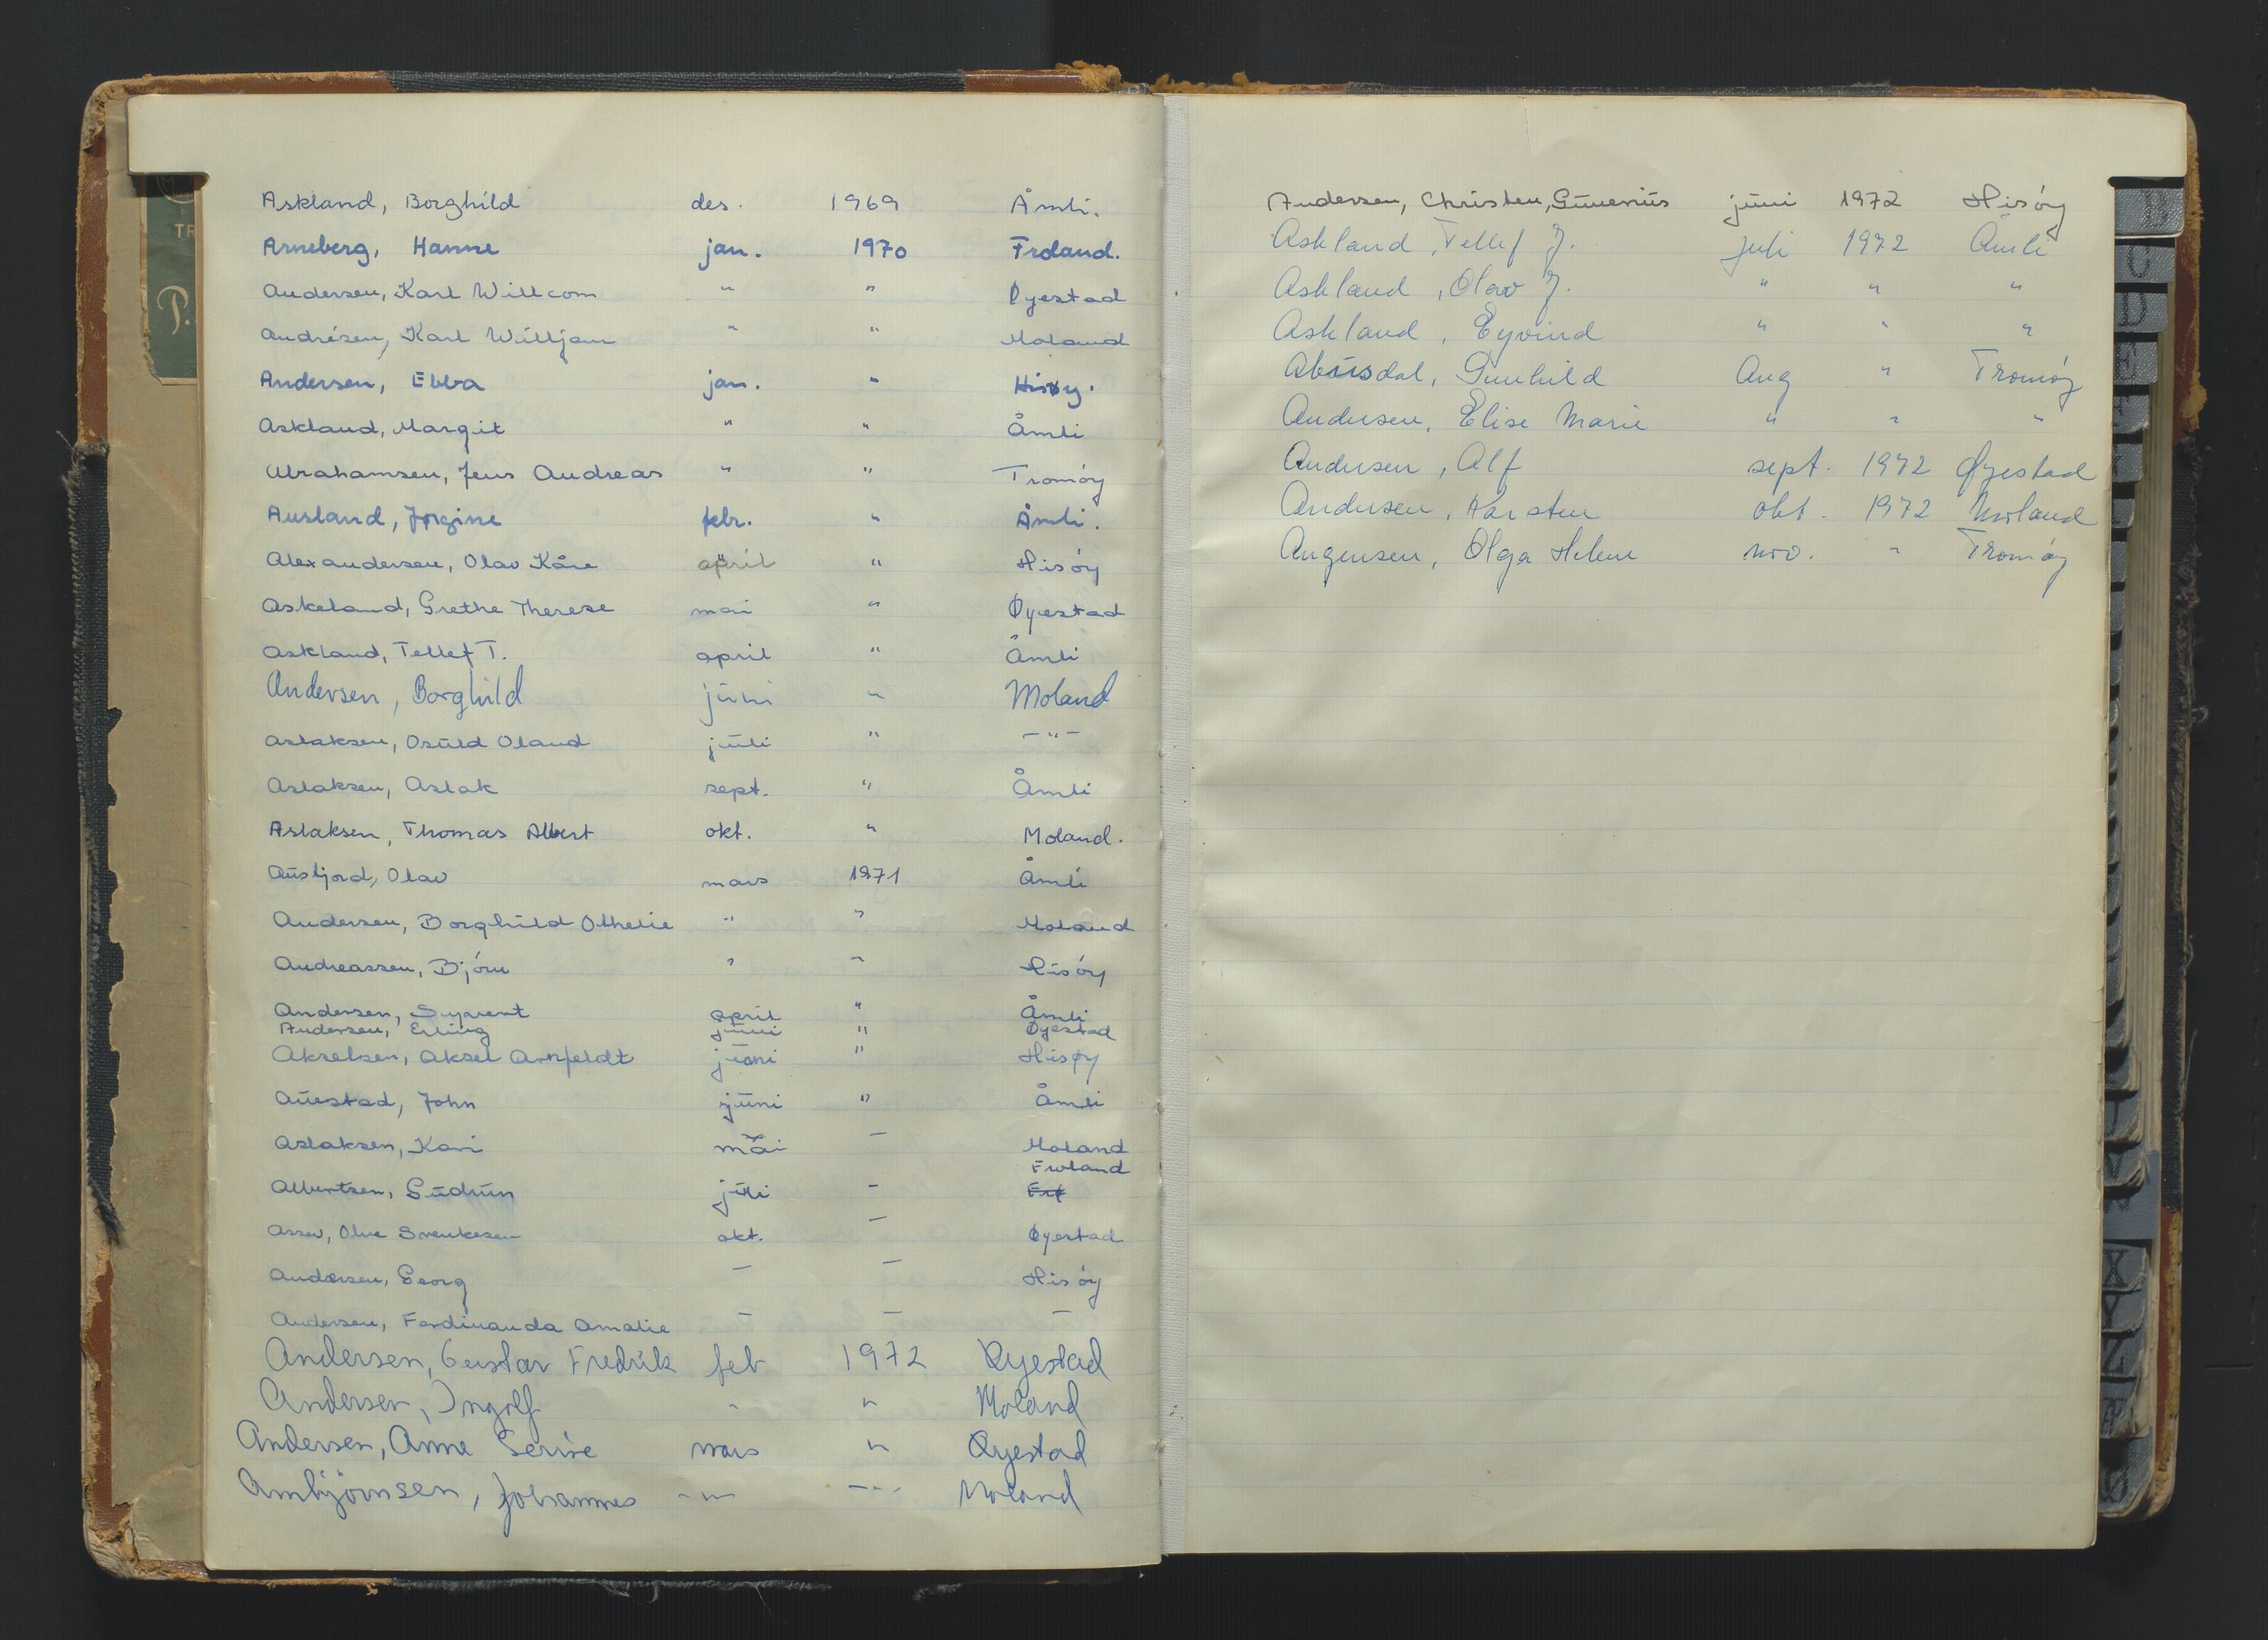 Askland, Borghild des. 1969 Åmli.
Arneberg, Hanne jan. 1970 Froland.
Andersen, Karl Willcom " " Øyestad
Andrésen, Karl Willjam " " Moland
Andersen, Ebba jan. " Hisøy.
Askland, Margit " " Åmli
Abrahamsen, Jens Andreas " " Tromöy
Ausland, Jørgine febr. " Åmli.
Alexandersen, Olav Kåre april " Hisöy
Askeland, Grethe Therese mai " Øyestad
Askland, Tellef T. april " Åmli
Andersen, Borghild juni " Moland
Aslaksen, Osuld Oland juli " -"-
Aslaksen, Aslak sept. " Åmli
Aslaksen, Thomas Albert okt. " Moland.
Ausljord, Olav mars 1971 Åmli
Andersen, Borghild Othelie " " Moland
Andreassen, Björn " " Hisöy
Andersen, Syvert april " Åmli
Andersen, Erling juni " Øyestad
Akselsen, Aksel Arnfeldt juni " Hisøy
Auestad, John juni " Åmli
Aslaksen, Kari mai - Moland
Froland
Albertsen, Gudrun juli -
Olve okt. - Øyestad
Andersen, Georg - - Hisöy
Andersen, Ferdinanda Amalie - - -
Andersen, Gustav Fredrik feb 1972 Øyestad
Andersen, Ingolf " " Moland
Andersen, Anne mars " Øyestad
Arnbjörnsen, Johannes -"- -"- Moland
TR
P.
Andersen, Christen, Gunerius juni 1972 Hisöy
Askland, Tellef J. juli 1972 Åmli
Askland, Olav J. " " "
Askland, Eyvind " " "
Abusdal, Gunhild Aug " Tromöy
Andersen, Elise Marie " " "
Andersen, Alf sept. 1972 Øyestad
Andersen, Karsten okt. 1972 Moland
Angensen, Olga Helene nov. " Tromöy
B
C
D
E
X
Y
Z
Æ
Ø